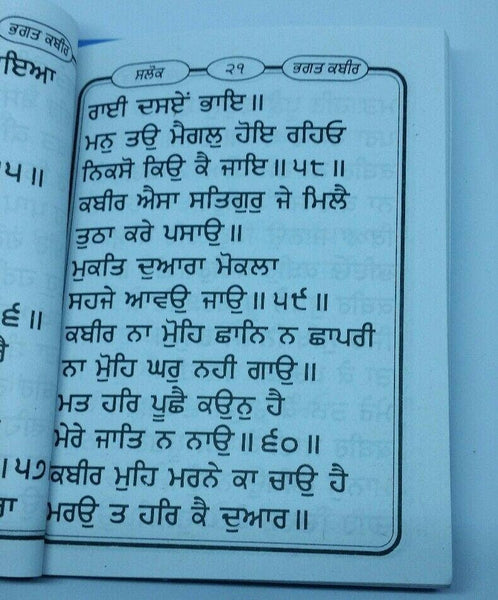 ਭਗਤ ਕਬੀਰ
ਇਆ
੫ ॥
੬ ॥
। ੫੭
ਸਲੋਕ ੨੧ ਭਗਤ ਕਬੀਰ
ਰਾਈ ਦਸਏਂ ਭਾਇ ॥
ਮਨੁ ਤਉ ਮੈਗਲੁ ਹੋਇ ਰਹਿਓ
ਨਿਕਸੋ ਕਿਉ ਕੈ ਜਾਇ ॥ ੫੮ ॥
ਕਬੀਰ ਐਸਾ ਸਤਿਗੁਰੁ ਜੇ ਮਿਲੈ
ਤੁਠਾ ਕਰੇ ਪਸਾਉ ॥
ਮੁਕਤਿ ਦੁਆਰਾ ਮੋਕਲਾ
ਸਹਜੇ ਆਵਉ ਜਾਉ ॥ ੫੯ ॥
ਕਬੀਰ ਨਾ ਮੋੁਹਿ ਛਾਨਿ ਨ ਛਾਪਰੀ
ਨਾ ਮੋੁਹਿ ਘਰੁ ਨਹੀ ਗਾਉ ॥
ਮਤ ਹਰਿ ਪੂਛੈ ਕਉਨੁ ਹੈ
ਮੇਰੇ ਜਾਤਿ ਨ ਨਾਉ ॥ ੬੦ ॥
ਕਬੀਰ ਮੁਹਿ ਮਰਨੇ ਕਾ ਚਾਉ ਹੈ
ਮਰਉ ਤ ਹਰਿ ਕੈ ਦੁਆਰ ॥